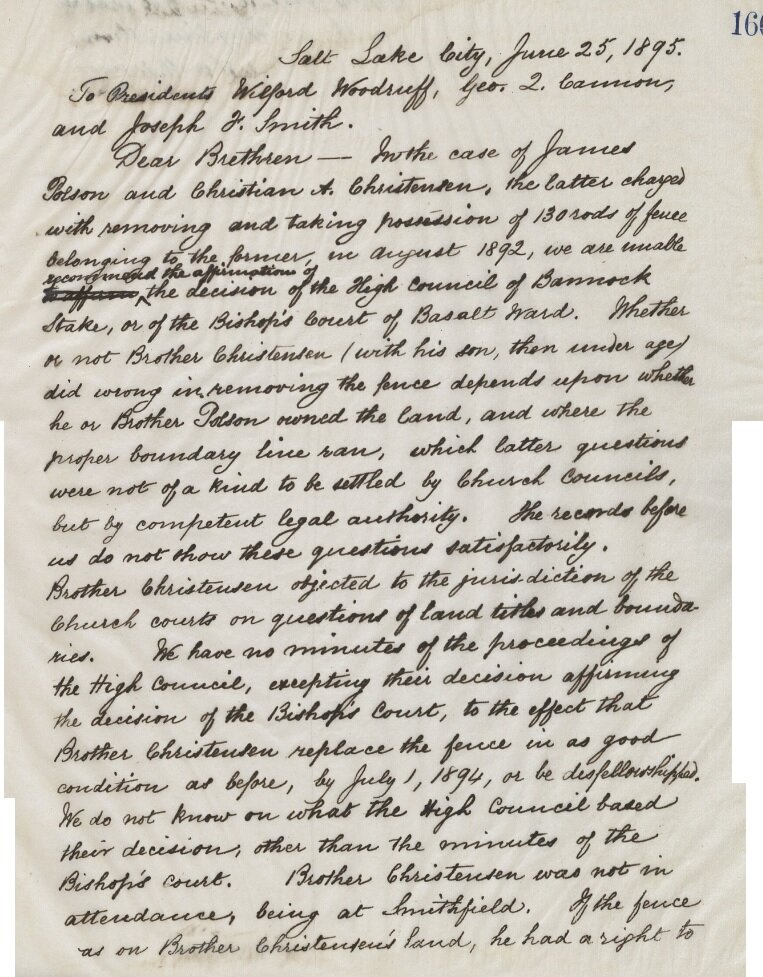 166
Salt Lake City, June 25, 1895.
To Presidents Wilford Woodruff, Geo. Q. Cannon,
and Joseph F. Smith.
Dear Brethren — In the case of James
Polson and Christian A. Christensen, the latter charged
with removing and taking possession of 130 rods of fence
belonging to the former, in August 1892, we are unable
recommend the affirmation of
to affirm ^ the decision of the High Council of Bannock
Stake, or of the Bishop's Court of Basalt Ward. Whether
or not Brother Christensen (with his son, then under age)
did wrong in removing the fence depends upon whether
he or Brother Polson owned the land, and where the
proper boundary line ran, which latter questions
were not of a kind to be settled by Church Councils,
but by competent legal authority. The records before
us do not show these questions satisfactorily.
Brother Christensen objected to the jurisdiction of the
Church courts on questions of land titles and bounda-
ries. We have no minutes of the proceedings of
the High Council, excepting their decision affirming
the decision of the Bishop's Court, to the effect that
Brother Christensen replace the fence in as good
condition as before, by July 1, 1894, or be disfellowshipped.
We do not know on what the High Council based
their decision, other than the minutes of the
Bishop's court. Brother Christensen was not in
attendance, being at Smithfield. If the fence
as on Brother Christensen's land, he had a right to